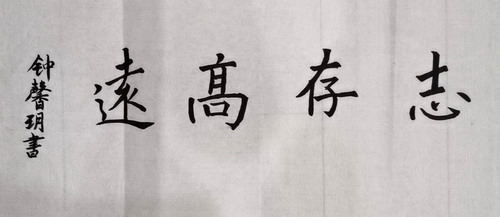 志存高遠
钟馨玥書